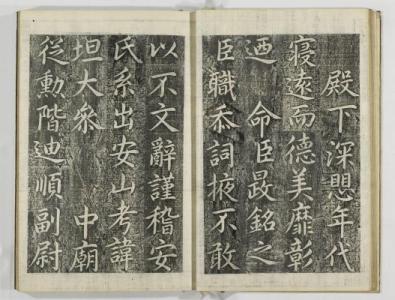 殿下深愳年代
寝遠而德美靡彰
迺　命臣最銘之
臣職忝詞掖不敢
以不文辭謹稽安
氏系出安山考諱
坦大叅　　中廟
從勳階迪順副尉